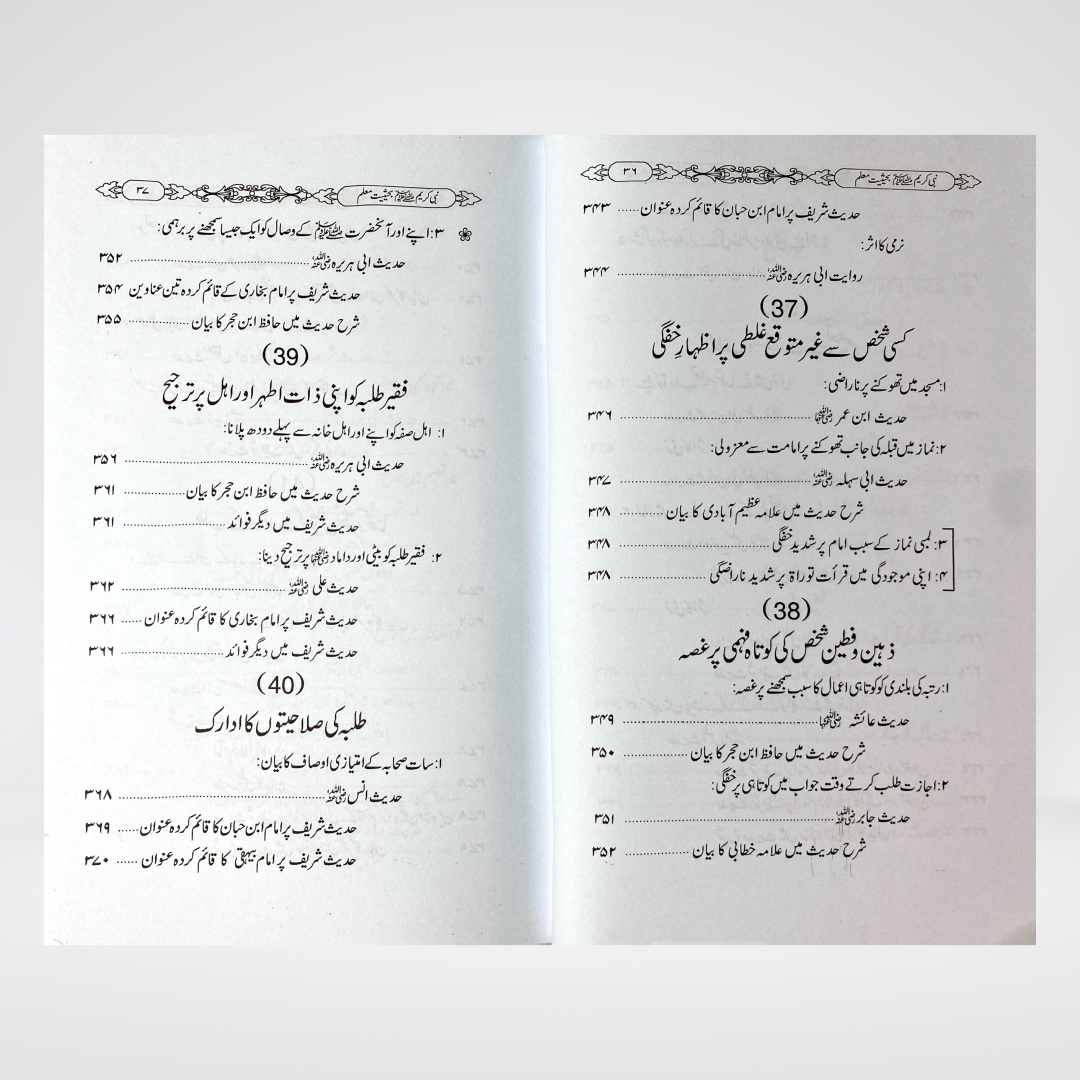 نبی کریم ﷺ بحیثیت معلم ۳۶
حدیث شریف پر امام ابن حبان کا قائم کردہ عنوان ...... ۳۴۳
نرمی کا اثر:
روایت ابی ہریرہ رضی اللہ عنہ ...... ۳۴۴
(37)
کسی شخص سے غیر متوقع غلطی پر اظہارِ خفگی
۱: مسجد میں تھوکنے پر ناراضی:
حدیث ابن عمر رضی اللہ عنہما ...... ۳۴۶
۲: نماز میں قبلہ کی جانب تھوکنے پر امامت سے معزولی:
حدیث ابی سہلہ رضی اللہ عنہ ...... ۳۴۷
شرح حدیث میں علامہ عظیم آبادی کا بیان ...... ۳۴۸
۳: لمبی نماز کے سبب امام پر شدید خفگی ...... ۳۴۸
۴: اپنی موجودگی میں قرأت توراۃ پر شدید ناراضگی ...... ۳۴۸
(38)
ذہین و فطین شخص کی کوتاہ فہمی پر غصہ
۱: رتبہ کی بلندی کو کوتاہی اعمال کا سبب سمجھنے پر غصہ:
حدیث عائشہ رضی اللہ عنہا ...... ۳۴۹
شرح حدیث میں حافظ ابن حجر کا بیان ...... ۳۵۰
۲: اجازت طلب کرتے وقت جواب میں کوتاہی پر خفگی:
حدیث جابر رضی اللہ عنہ ...... ۳۵۱
شرح حدیث میں علامہ خطابی کا بیان ...... ۳۵۲
نبی کریم ﷺ بحیثیت معلم ۳۷
۳: اپنے اور آنحضرت ﷺ کے وصال کو ایک جیسا سمجھنے پر برہمی:
حدیث ابی ہریرہ رضی اللہ عنہ ...... ۳۵۲
حدیث شریف پر امام بخاری کے قائم کردہ تین عناوین ۳۵۴
شرح حدیث میں حافظ ابن حجر کا بیان ...... ۳۵۵
(39)
فقیر طلبہ کو اپنی ذات اطہر اور اہل پر ترجیح
۱: اہل صفہ کو اپنے اور اہل خانہ سے پہلے دودھ پلانا:
حدیث ابی ہریرہ رضی اللہ عنہ ...... ۳۵۶
شرح حدیث میں حافظ ابن حجر کا بیان ...... ۳۶۱
حدیث شریف میں دیگر فوائد ...... ۳۶۱
۲: فقیر طلبہ کو بیٹی اور داماد رضی اللہ عنہما پر ترجیح دینا:
حدیث علی رضی اللہ عنہ ...... ۳۶۲
حدیث شریف پر امام بخاری کا قائم کردہ عنوان ...... ۳۶۶
حدیث شریف میں دیگر فوائد ...... ۳۶۶
(40)
طلبہ کی صلاحیتوں کا ادارک
۱: سات صحابہ کے امتیازی اوصاف کا بیان:
حدیث انس رضی اللہ عنہ ...... ۳۶۸
حدیث شریف پر امام ابن حبان کا قائم کردہ عنوان ...... ۳۶۹
حدیث شریف پر امام بیہقی کا قائم کردہ عنوان ...... ۳۷۰